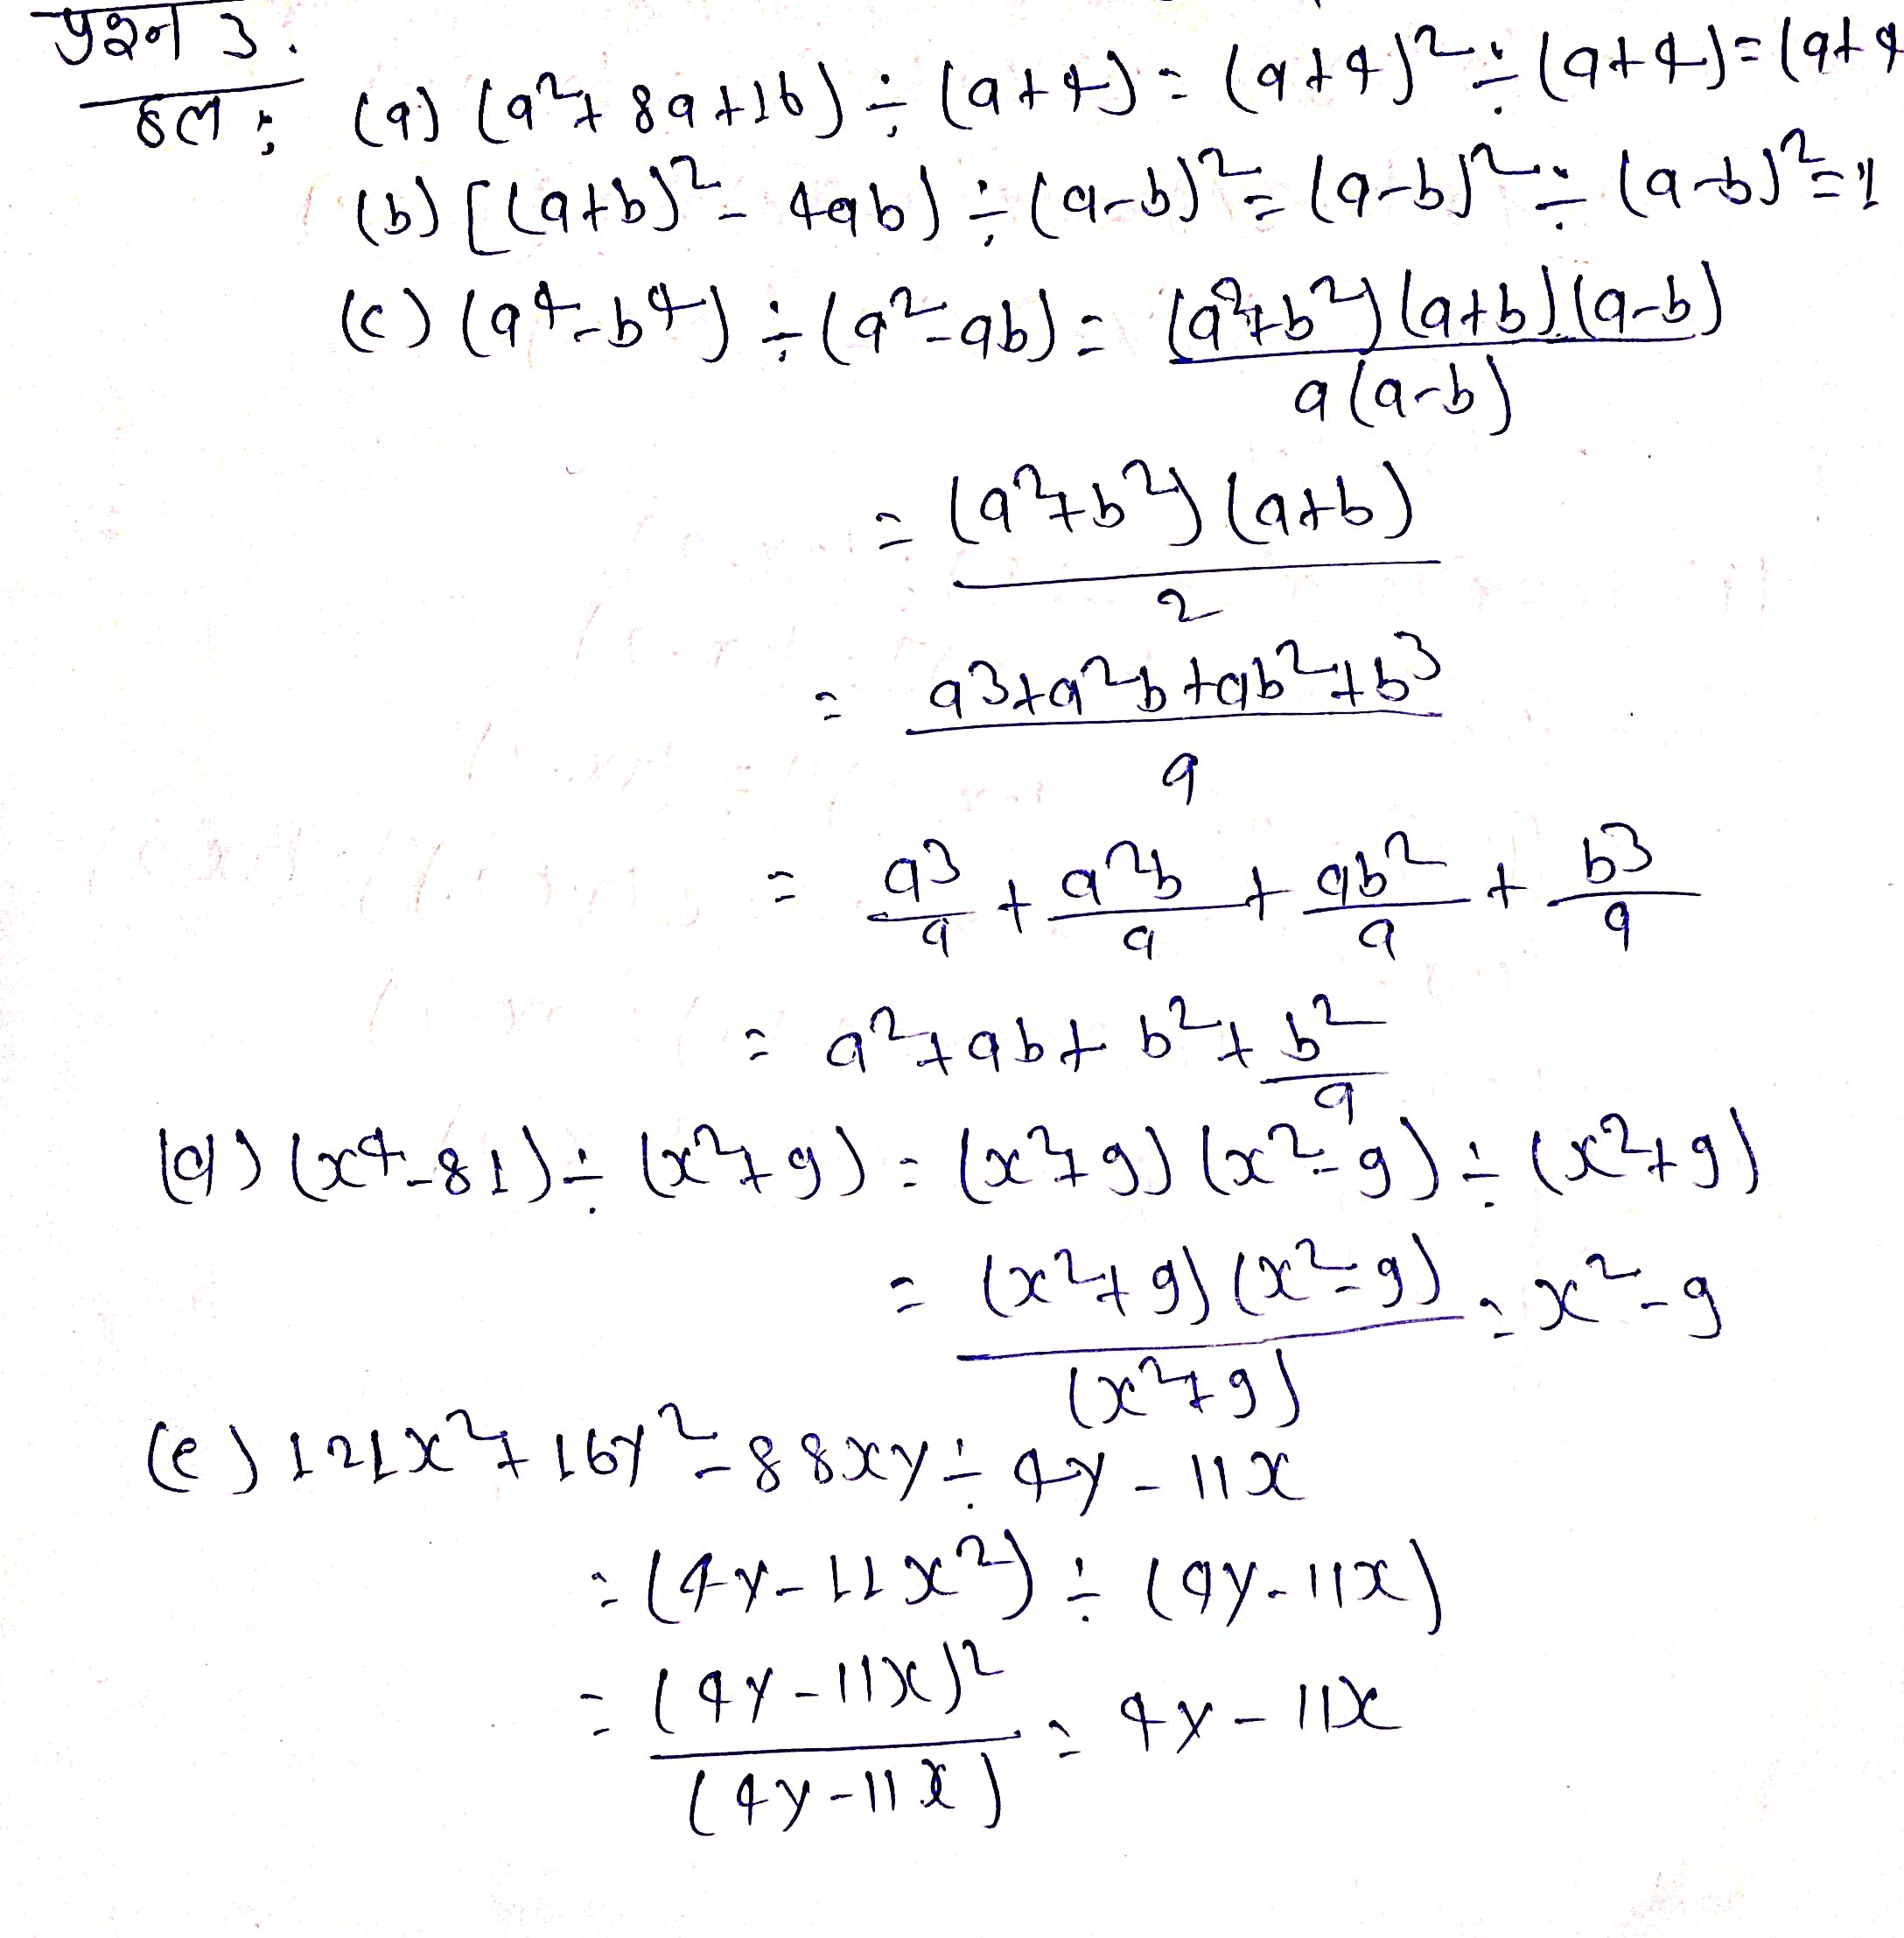 प्रश्न 3.
हल : (a) (a²+ 8a+16) ÷ (a+4) = (a+4)² ÷ (a+4) = (a+4
(b) [(a+b)² - 4ab) ÷ (a-b)² = (a-b)² ÷ (a-b)² = 1
(c) (a⁴-b⁴) ÷ (a²-ab) = (a²+b²)(a+b)(a-b)
a(a-b)
= (a²+b²)(a+b)
2
= a³+a²b+ab²+b³
a
= a³/a + a²b/a + ab²/a + b³/a
= a²+ab+b²+b²/a
(d) (x⁴-81) ÷ (x²+9) = (x²+9)(x²-9) ÷ (x²+9)
= (x²+9)(x²-9) = x²-9
(x²+9)
(e) 121x²+16y²-88xy ÷ 4y-11x
= (4y-11x²) ÷ (4y-11x)
= (4y-11x)² = 4y-11x
(4y-11x)